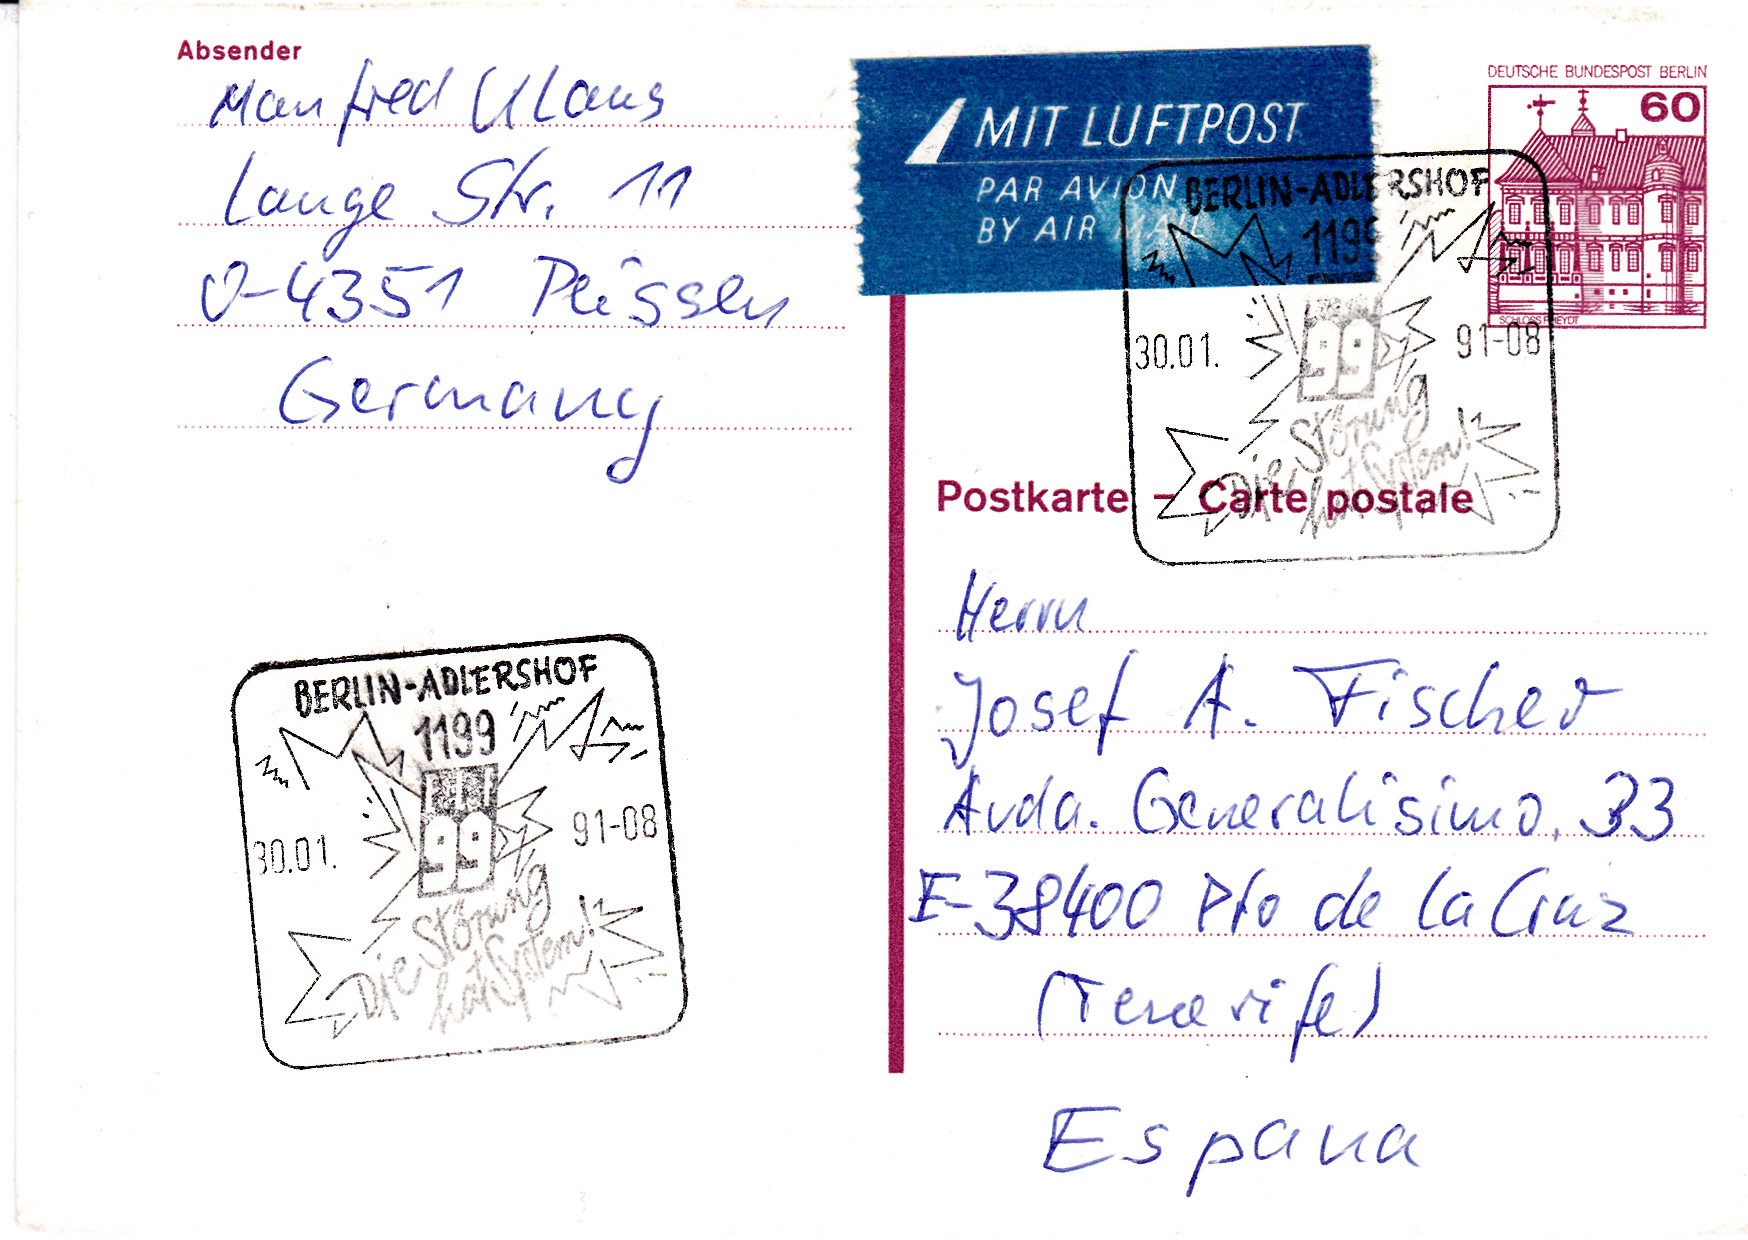 Absender
Manfred Klaus
Lange Str. 11
O-4351 Peissen
Germany
MIT LUFTPOST
PAR AVION
BY AIR MAIL
DEUTSCHE BUNDESPOST BERLIN
60
SCHLOSS RHEYDT
BERLIN-ADLERSHOF
1199
30.01. 91-08
99
Die Störung
hat System!
Postkarte – Carte postale
Herrn
Josef A. Fischer
Avda. Generalisimo, 33
E-38400 Pto de la Cruz
(Tenerife)
Espana
BERLIN-ADLERSHOF
1199
30.01. 91-08
99
Die Störung
hat System!